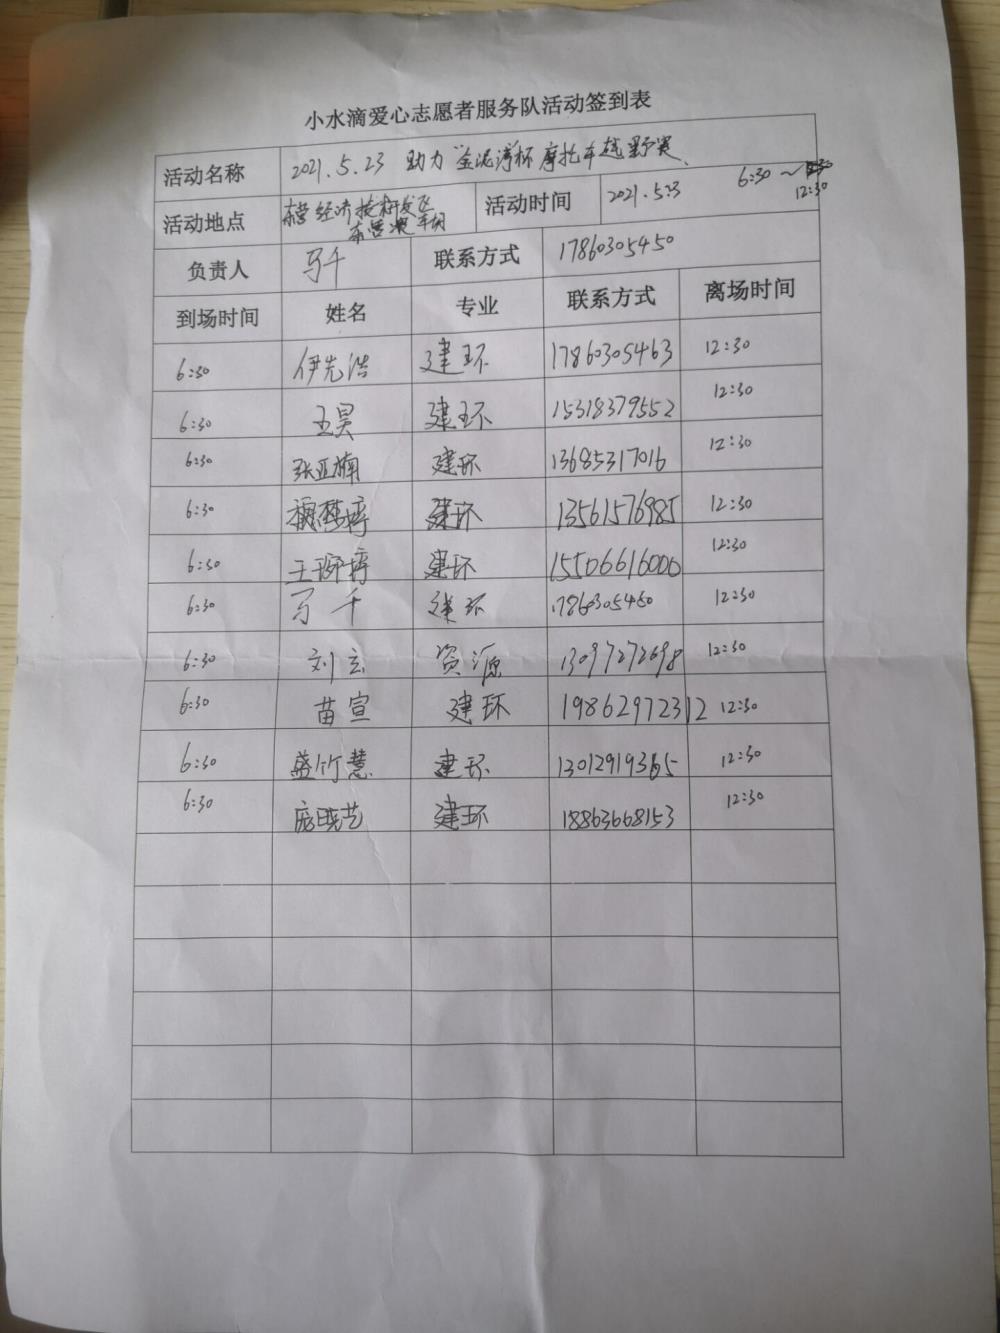 小水滴爱心志愿者服务队活动签到表
活动名称 2021.5.23 助力"金泥湾杯摩托车越野赛、
活动地点 东营经济技术开发区 活动时间 2021.5.23 6:30~12:30
负责人 马千 联系方式 17860305450
到场时间 姓名 专业 联系方式 离场时间
6:30 伊先浩 建环 17860305463 12:30
6:30 王昊 建环 15318379552 12:30
6:30 张亚楠 建环 13685317016 12:30
6:30 建环 13561576985 12:30
6:30 建环 15506616000 12:30
6:30 马千 建环 17860305450 12:30
6:30 刘玄 资源 13097272698 12:30
6:30 苗宣 建环 19862972312 12:30
6:30 盛竹慧 建环 13012919365 12:30
6:30 庞晓艺 建环 18863668153 12:30